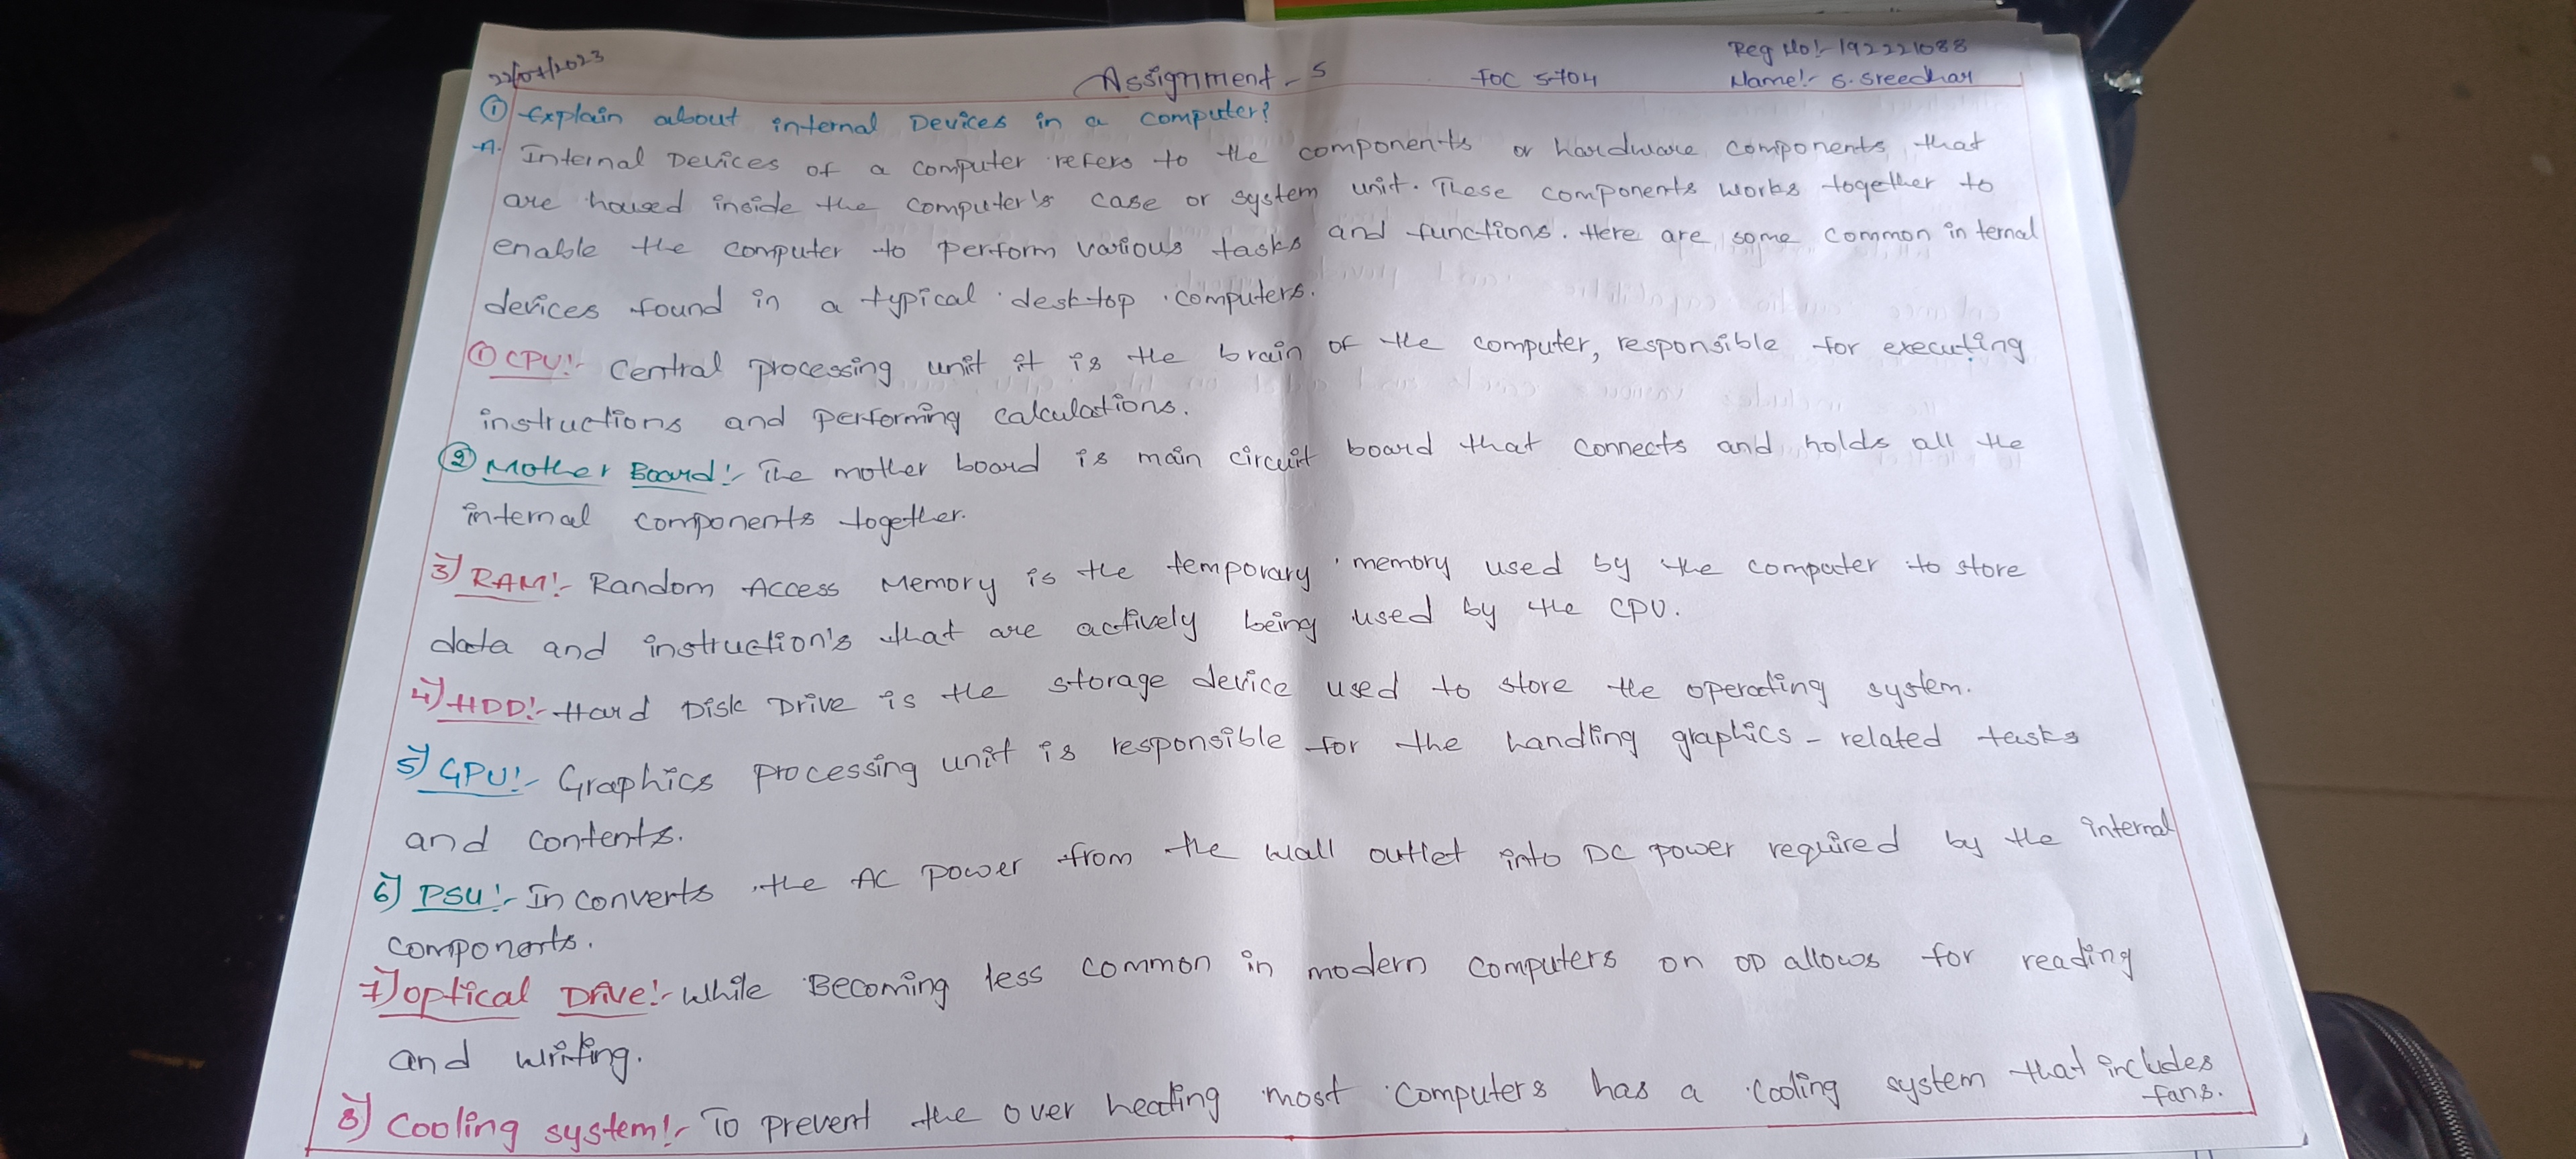 22/07/2023
Assignment - 5
FOC 5704
Reg No:- 192221088
Name:- G. Sreedhar
① Explain about internal Devices in a computer?
A. Internal Devices of a computer refers to the components or hardware components that
are housed inside the computer's case or system unit. These components works together to
enable the computer to perform various tasks and functions. Here are some common in ternal
devices found in a typical desktop computers.
① CPU:- Central processing unit it is the brain of the computer, responsible for executing
instructions and performing calculations.
② Mother Board:- The mother board is main circuit board that connects and holds all the
internal components together.
3) RAM:- Random Access Memory is the temporary memory used by the computer to store
data and instruction's that are actively being used by the CPU.
4) HDD:- Hard Disk Drive is the storage device used to store the operating system.
5) GPU:- Graphics processing unit is responsible for the handling graphics - related tasks
and contents.
6) PSU:- In converts the AC power from the wall outlet into DC power required by the internal
components.
7) optical Drive:- While Becoming less common in modern computers on OD allows for reading
and writing.
8) Cooling system:- To prevent the over heating most computers has a cooling system that includes
fans.